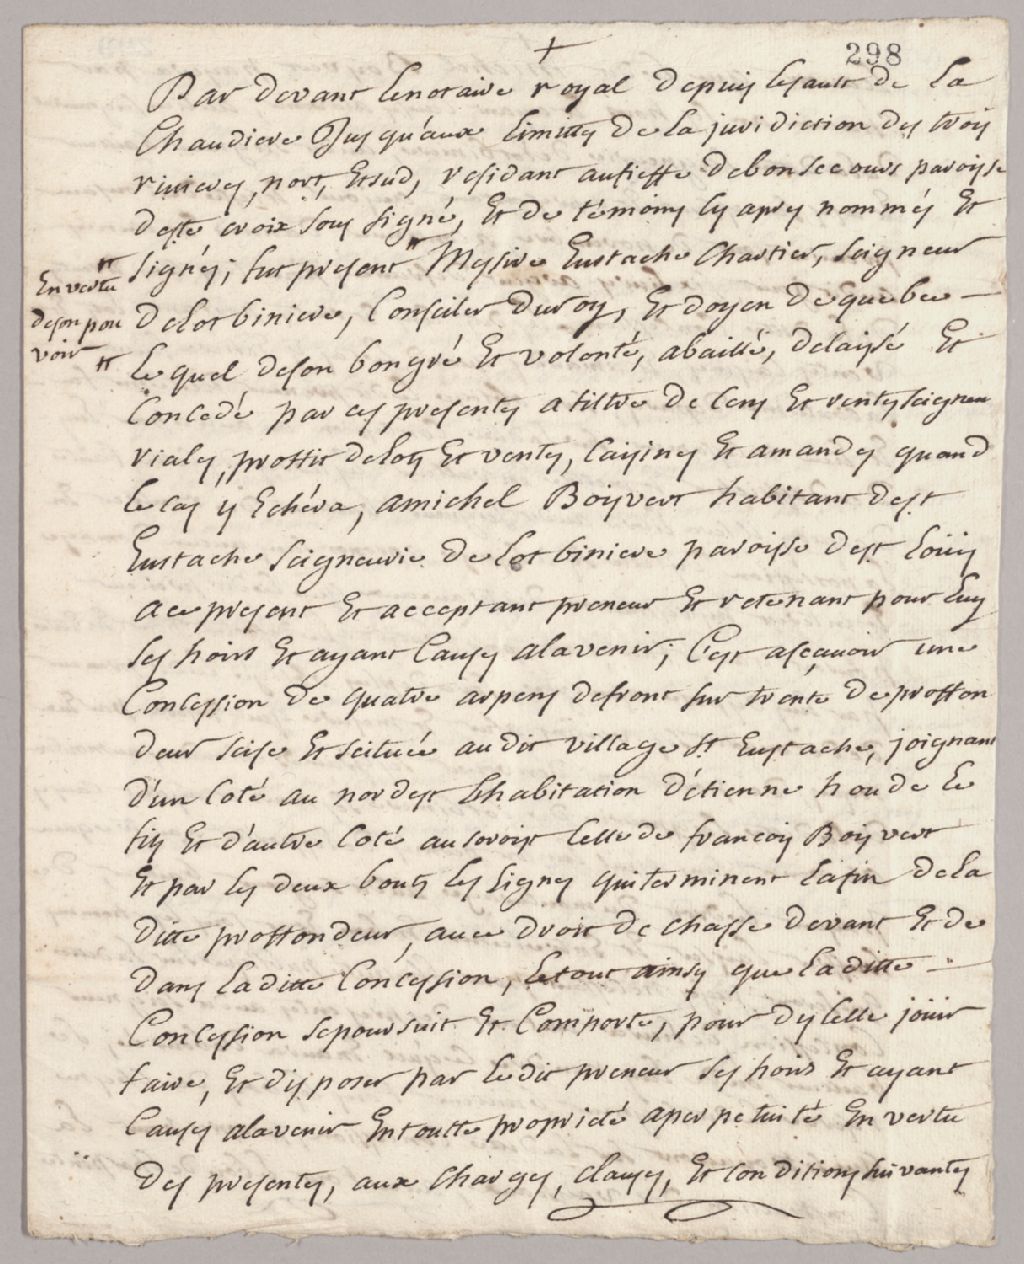 298
Par devant le notaire royal depuis lesault de La
Chaudiere Jusqu'aux limittes de la juridiction des trois
rivieres, nort, Et sud, residant aufieffe debonsecours paroisse
deste croix sous signé, Et de témoins cy apres nommés Et
signés; fut present " Messire Eustache Chartier, seigneur
" En vertu
deson pou
voir "
delotbiniere, Conseiler du roy, Et doyen de quebec —
le quel deson bongré Et volonté, abaillé, delaissé Et
Concedé par ces presentes a tiltre de Cens Et rentes seigneu
riales, proffit delots Et ventes, saisines Et amandes quand
le cas y Echéra, amichel Boisvert habitant dest
Eustache seigneurie de lotbiniere paroisse dest loüis
ace present Et acceptant preneur Et retenant pour luy
ses hoirs Et ayant Causes alavenir; C'est asçavoir une
Concession de quatre arpens defront sur trente de proffon
deur scise Et scituée audit village st Eustache, joignant
d'un Coté au nordest Lhabitation d'étienne houde le
fils Et d'autre Coté au sorois Celle de francois Boisvert
Et par les deux bouts les lignes quiterminent lafin dela
ditte proffondeur, avec droit de chasse devant Et de
dans Laditte Concession, le tout ainsy que Laditte —
Concession sepoursuit Et Comporte, pour dicelle joüir
faire, Et disposer par ledit preneur ses hoirs Et ayant
Causes alavenir Entoutte proprieté aperpetuité En vertu
des presentes, aux charges, clauses, Et conditions suivantes